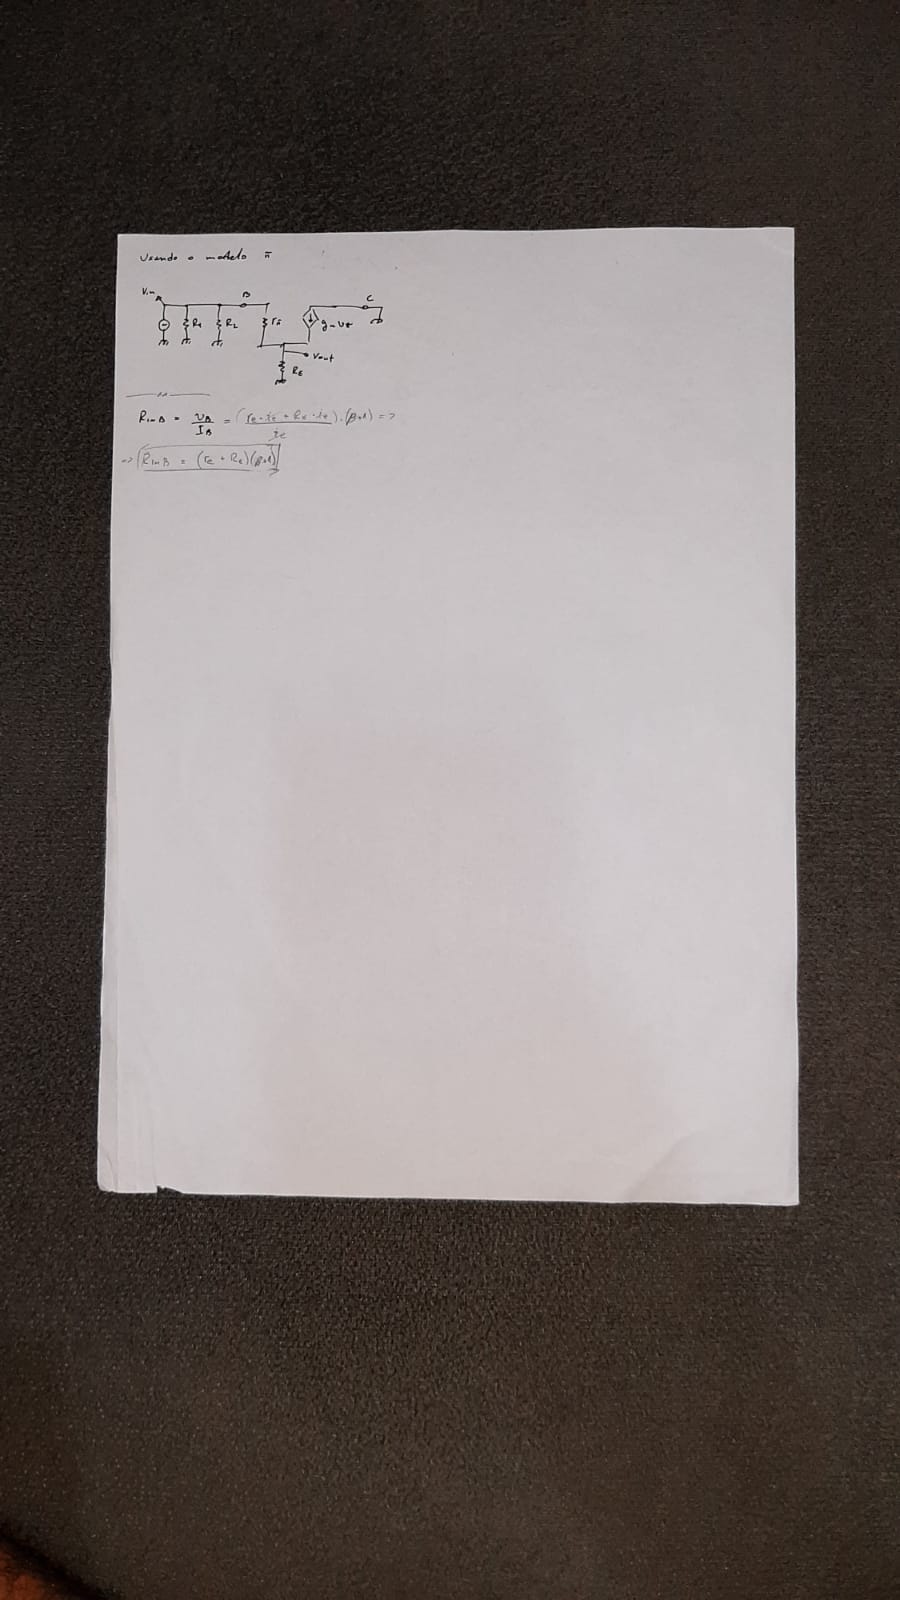 Usando o modelo π
Vin
B
C
R1
R2
rπ
gmvπ
Vout
RE
RinB = vB / IB = (re·ie + RE·ie)·(β+1) / ie =>
=> RinB = (re + RE)(β+1)